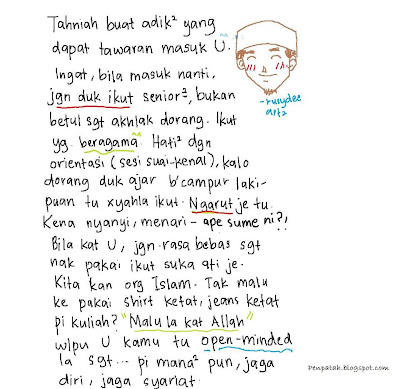 Tahniah buat adik² yang
dapat tawaran masuk U.
Ingat, bila masuk nanti,
jgn duk ikut senior², bukan
betul sgt akhlak dorang. Ikut
yg beragama. Hati² dgn
orientasi (sesi suai-kenal), kalo
dorang duk ajar b'campur laki-
puan tu xyahla ikut. Ngarut je tu.
Kena nyanyi, menari - ape sume ni?!
Bila kat U, jgn rasa bebas sgt
nak pakai ikut suka ati je.
Kita kan org Islam. Tak malu
ke pakai shirt ketat, jeans ketat
pi kuliah? "Malu la kat Allah"
wlpu U kamu tu open-minded
la sgt... pi mana² pun, jaga
diri, jaga syariat.
Penpatah.blogspot.com